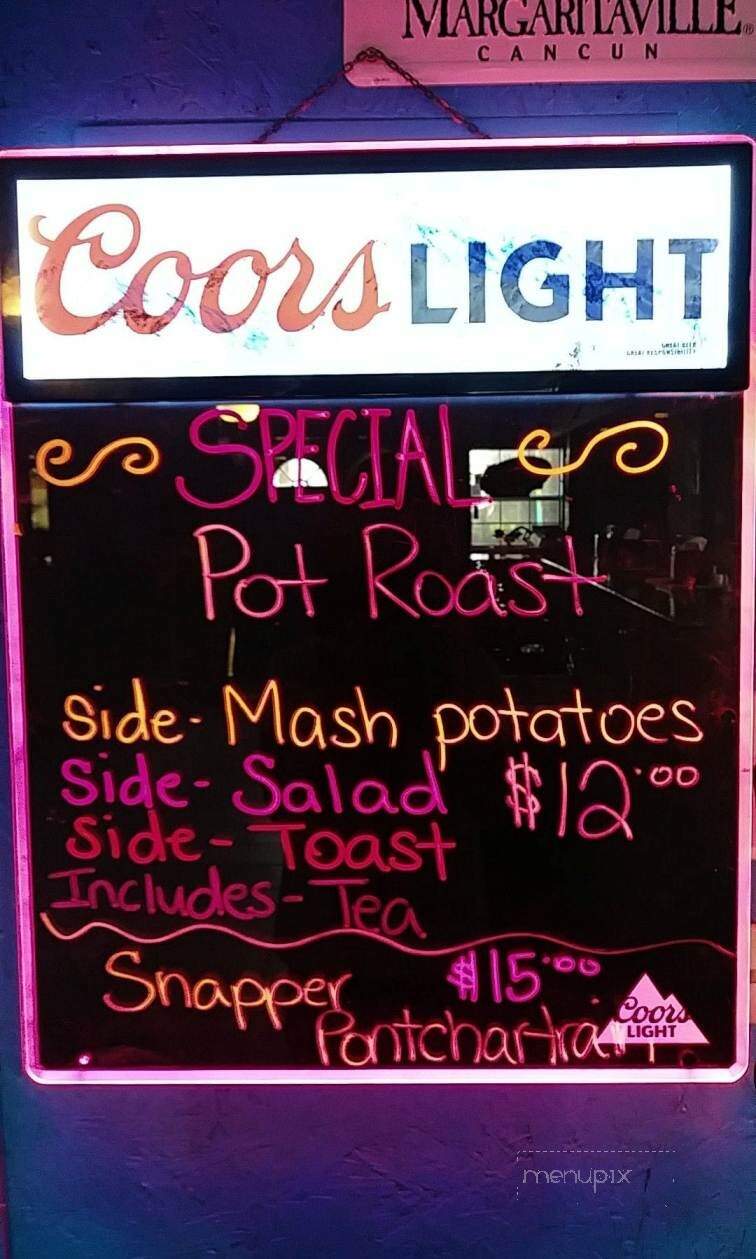 MARGARITAVILLE®
CANCUN
Coors LIGHT
GREAT BEER
GREAT RESPONSIBILITY
SPECIAL
Pot Roast
Side- Mash potatoes
Side- Salad $12.00
Side- Toast
Includes- Tea
Snapper $15.00
Pontchartrain
Coors
LIGHT
menupix